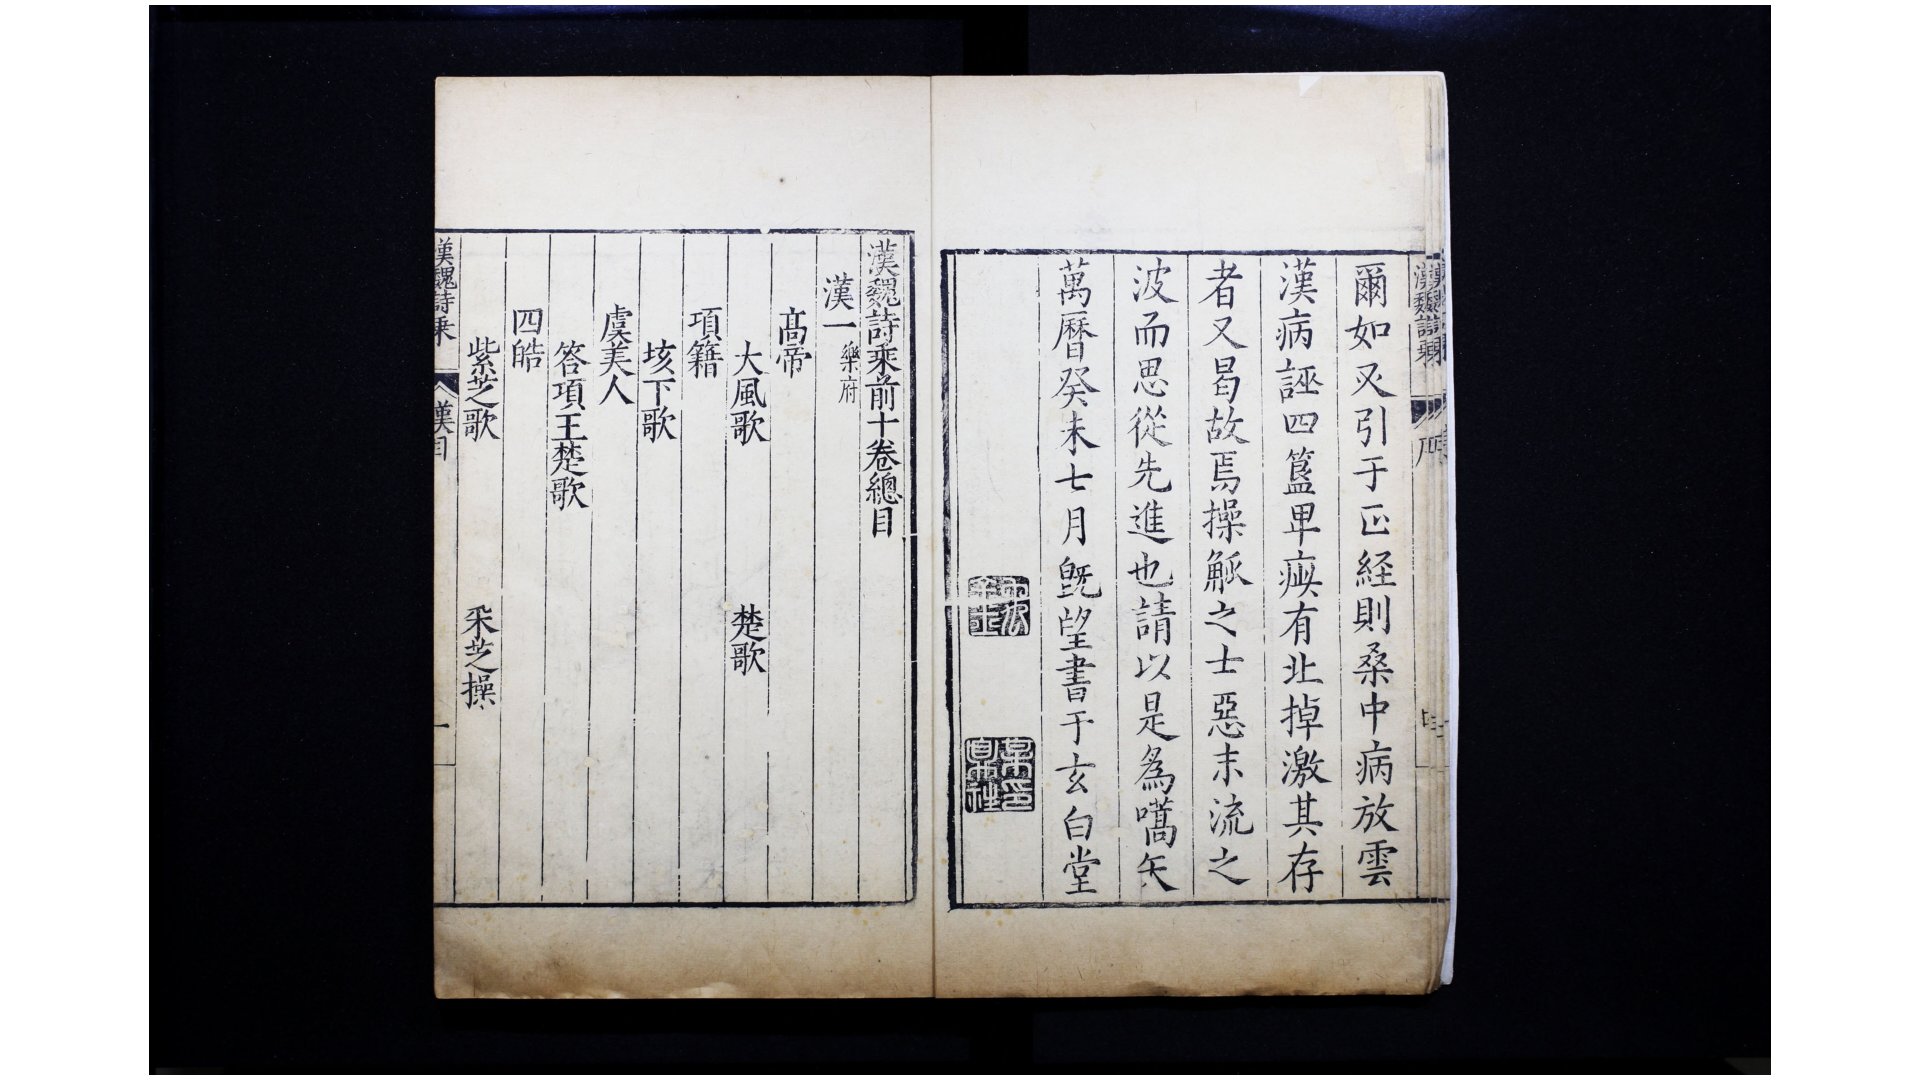 爾如又引于正経則桑中病放雲
漢病誣四簋卑瘐有北掉激其存
者又曷故焉操觚之士惡末流之
波而思從先進也請以是爲嚆矢
萬曆癸未七月旣望書于玄白堂
漢魏詩乘前十卷總目
漢一樂府
高帝
大風歌 楚歌
項籍
垓下歌
虞美人
答項王楚歌
四皓
紫芝歌 采芝操
漢魏詩乘 漢目 一